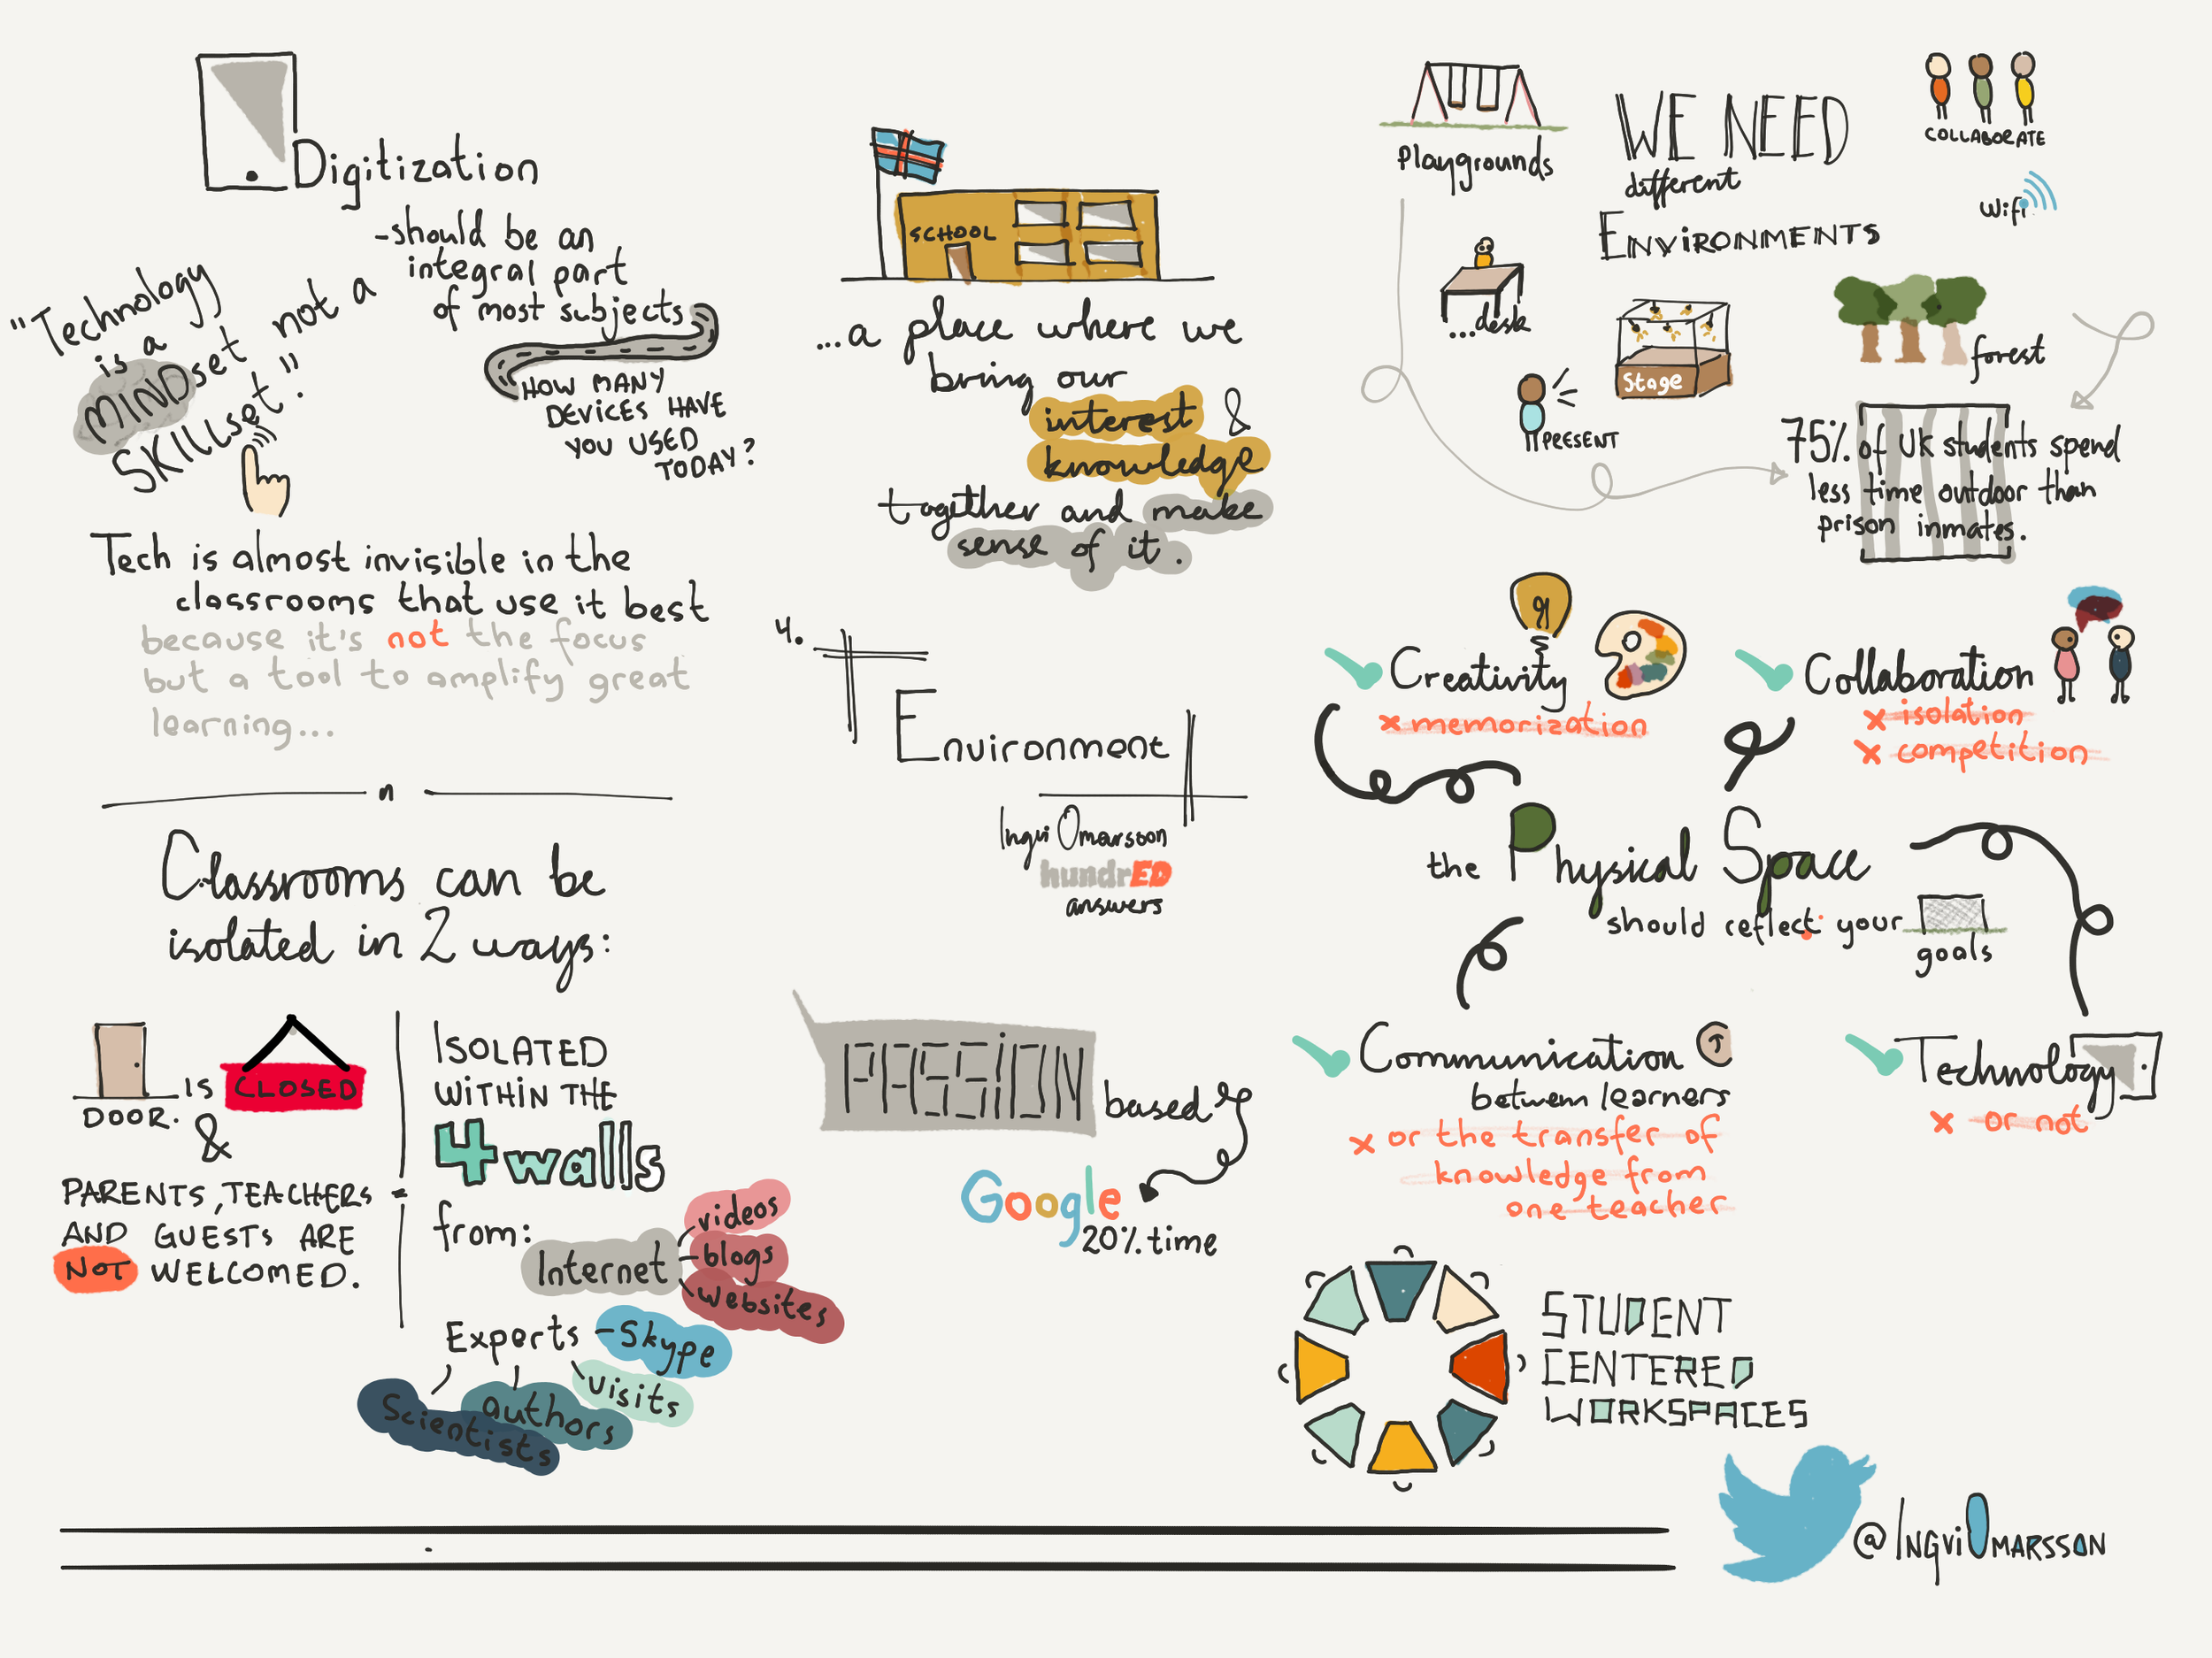 Digitization
-should be an
integral part
of most subjects
HOW MANY
DEVICES HAVE
YOU USED
TODAY?
"Technology
is a
MINDset not a
SKILLset."
Tech is almost invisible in the
classrooms that use it best
because it's not the focus
but a tool to amplify great
learning...
Classrooms can be
isolated in 2 ways:
DOOR. IS CLOSED
&
PARENTS, TEACHERS
AND GUESTS ARE
NOT WELCOMED.
ISOLATED
WITHIN THE
4 walls
from:
Internet
videos
blogs
websites
Experts - Skype
visits
authors
Scientists
SCHOOL
...a place where we
bring our
interest &
knowledge
together and make
sense of it.
4.
Environment
Ingvi Omarsson
hundrED
answers
PASSiON based
Google
20% time
Playgrounds
WE NEED
different
ENViRONMENTS
COLLABORATE
wifi
...desk
Stage
forest
PRESENT
75% of UK students spend
less time outdoor than
prison inmates.
Creativity
x memorization
Collaboration
x isolation
x competition
the Physical Space
should reflect your
goals
Communication
between learners
x or the transfer of
knowledge from
one teacher
Technology
x or not
STUDENT
CENTERED
WORKSPACES
@INGViOMARSSON